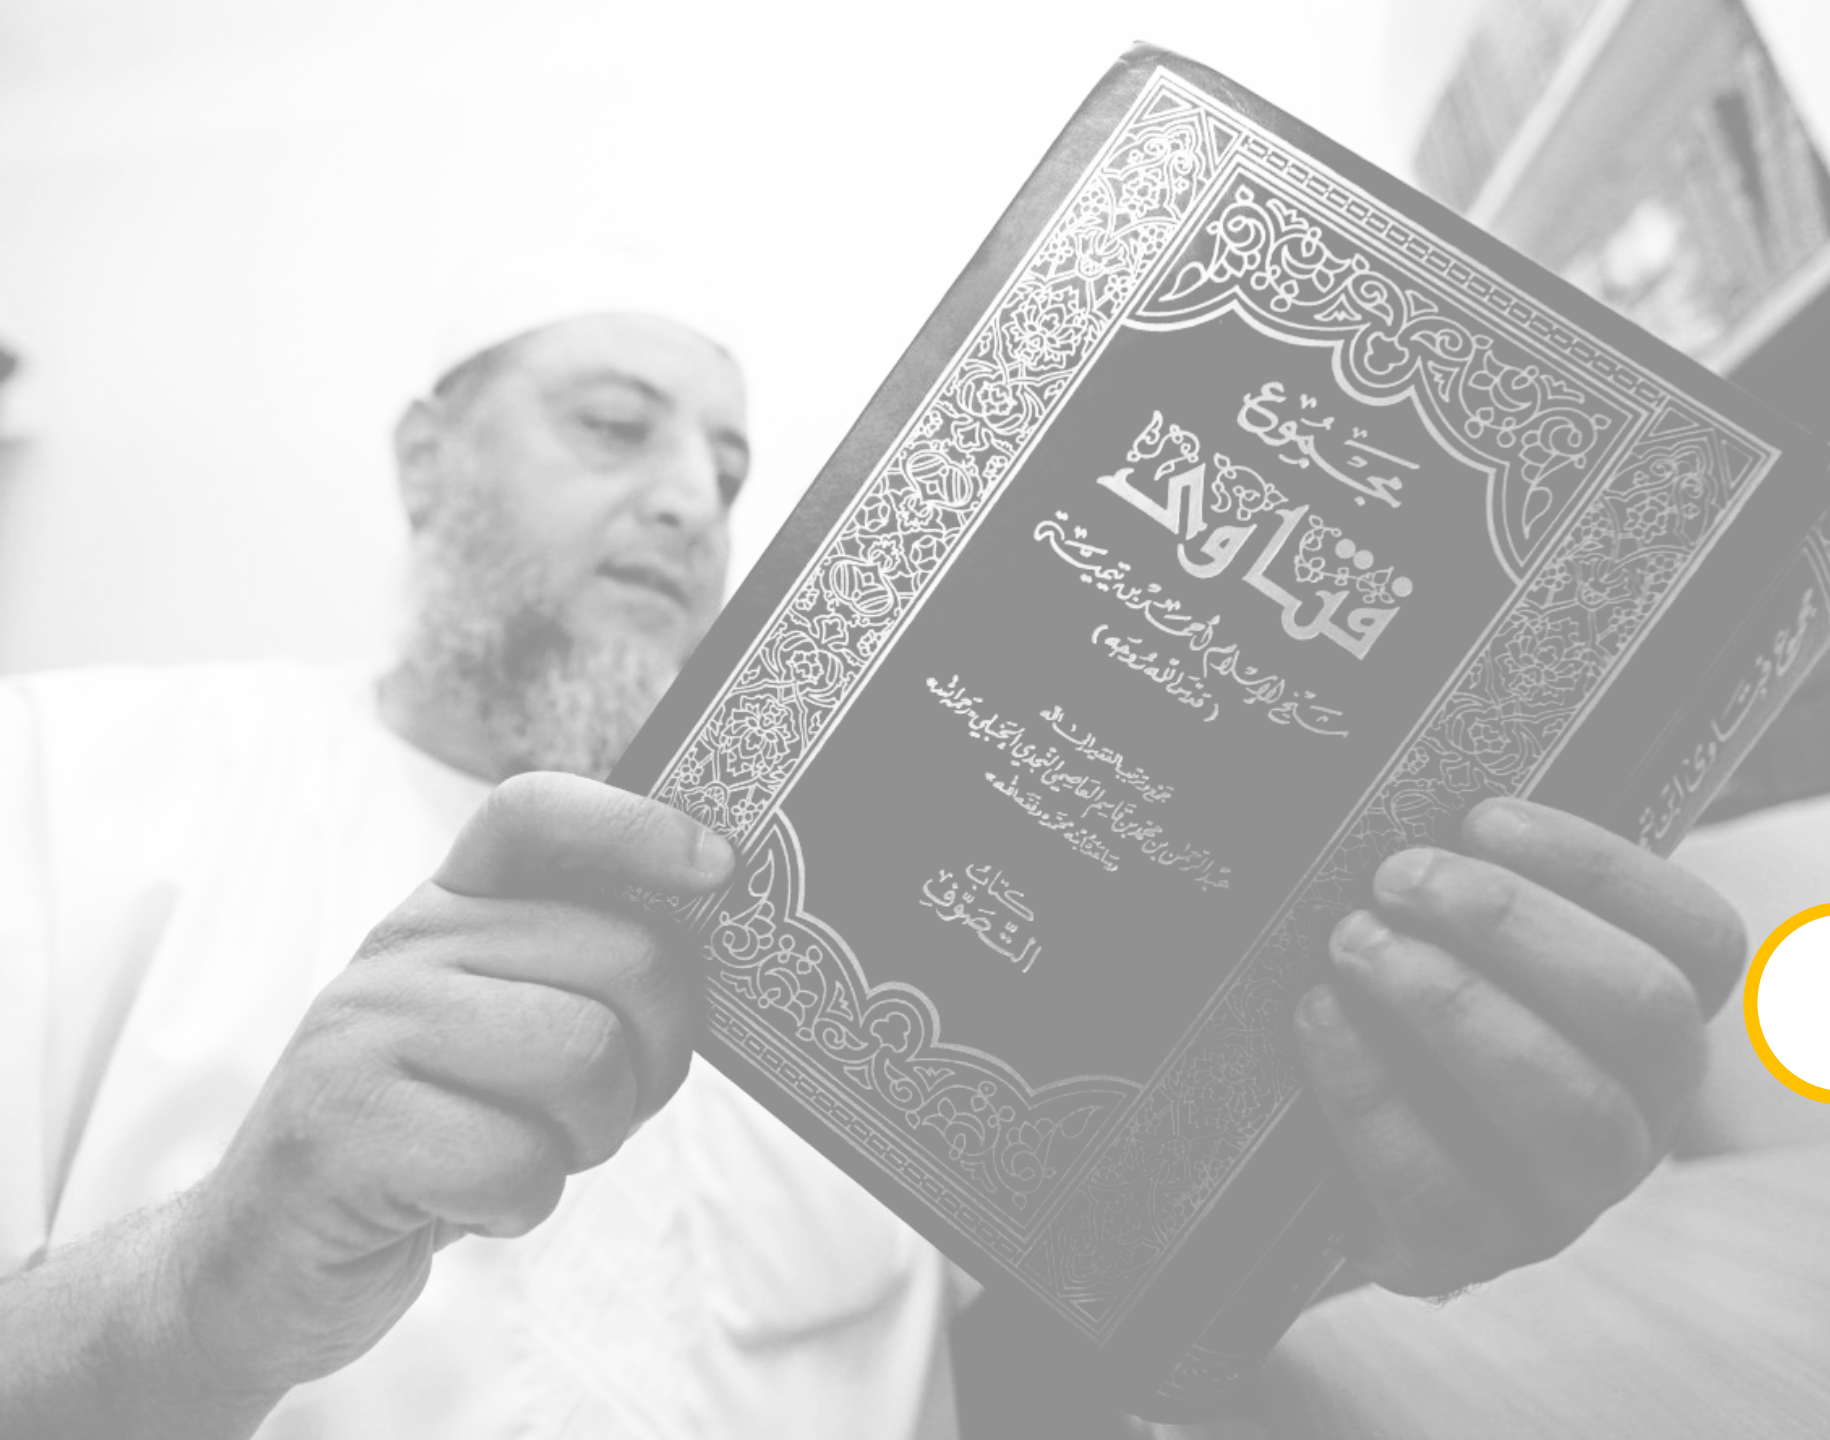 مجموع
فتاوى
شيخ الإسلام أحمد بن تيمية
(قدس الله روحه)
جمع وترتيب الفقير إلى الله
عبد الرحمن بن محمد بن قاسم العاصمي النجدي الحنبلي رحمه الله
وساعده ابنه محمد وفقه الله
كتاب
التصوف